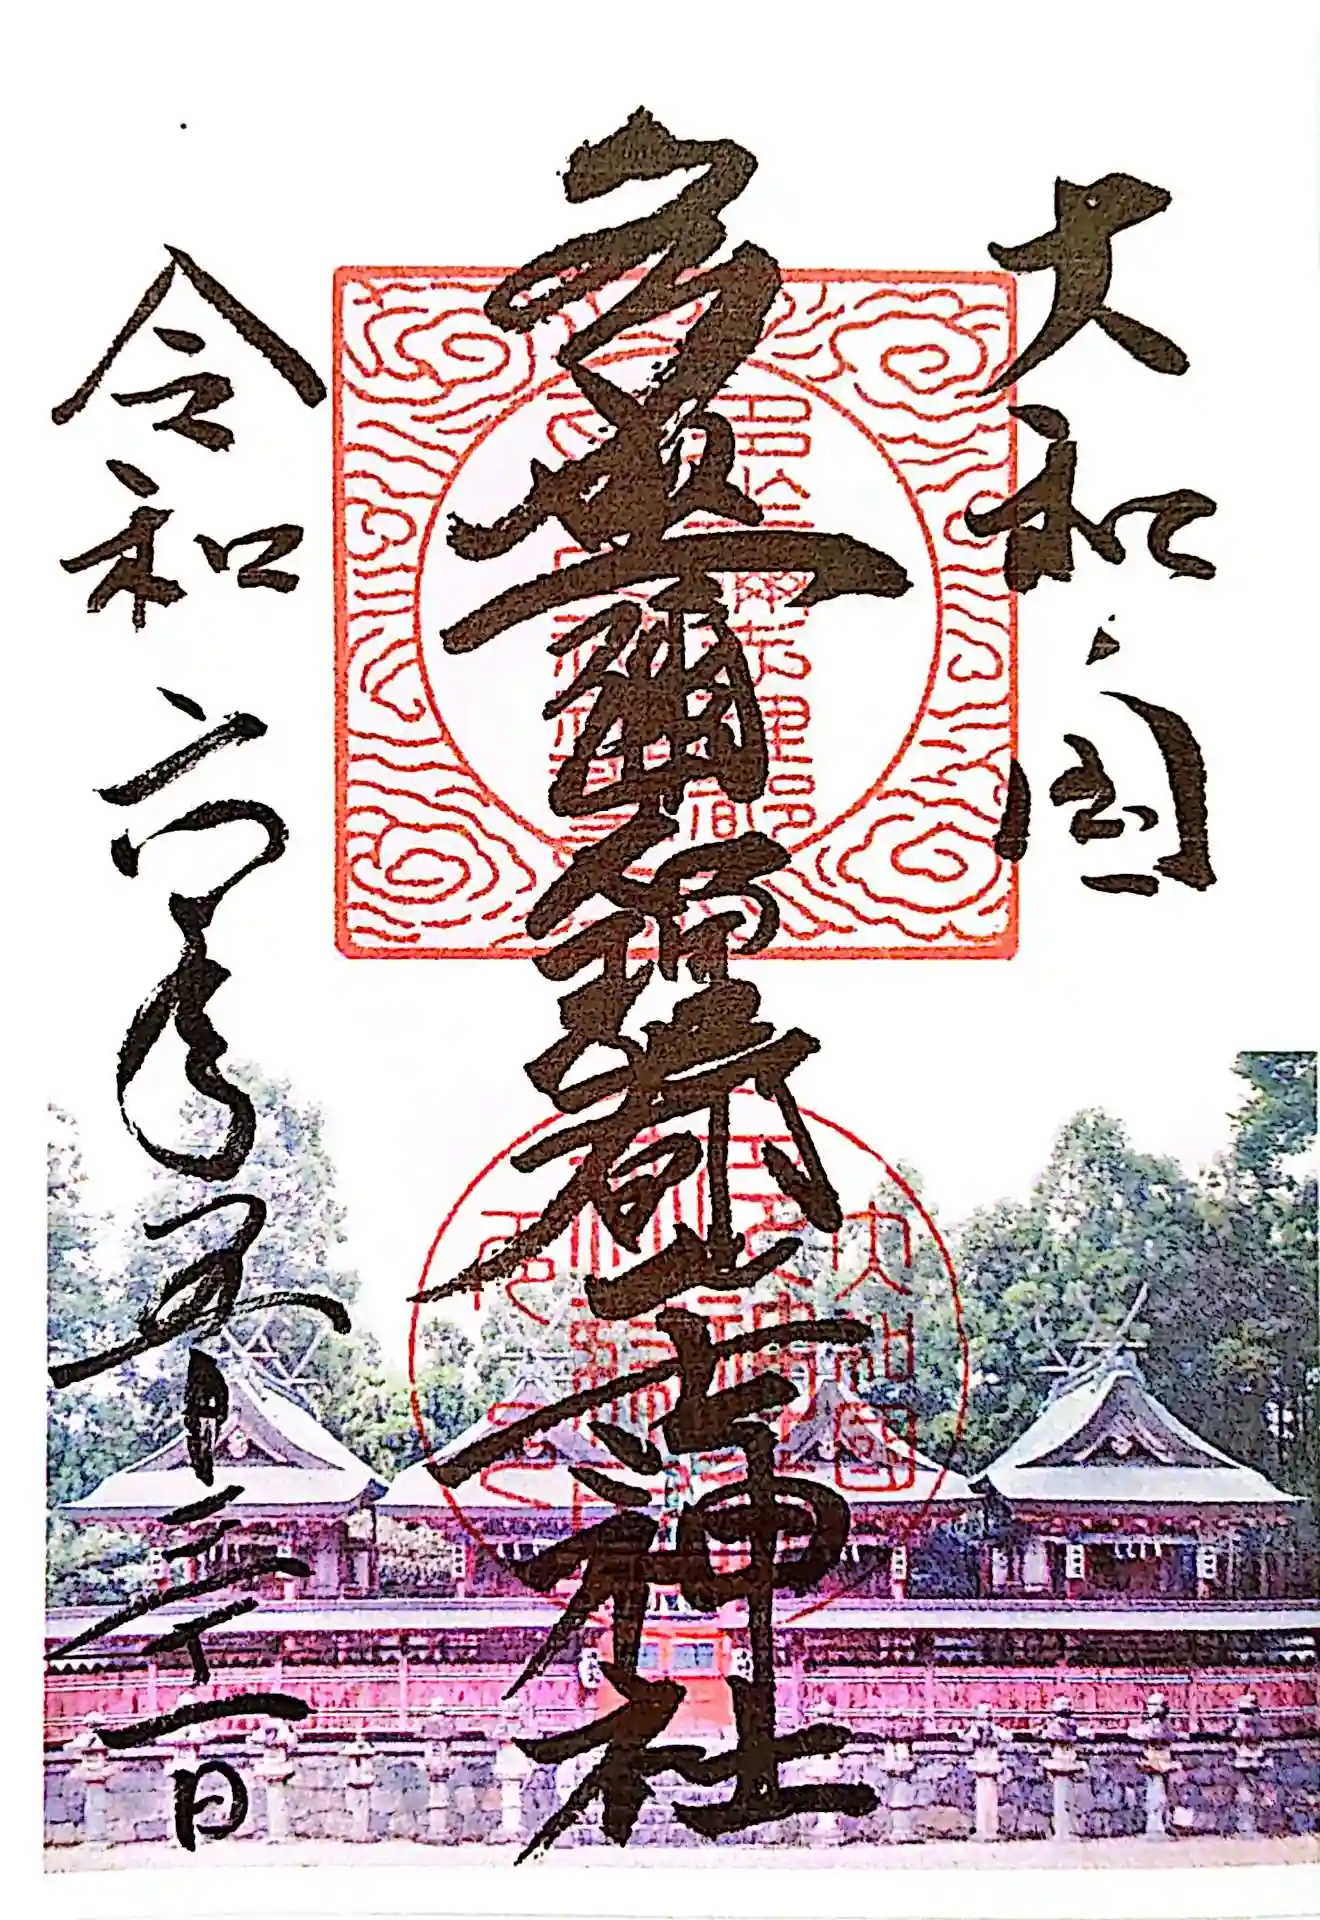 大和国
多坐彌志理都比古神社
令和六年五月三十一日